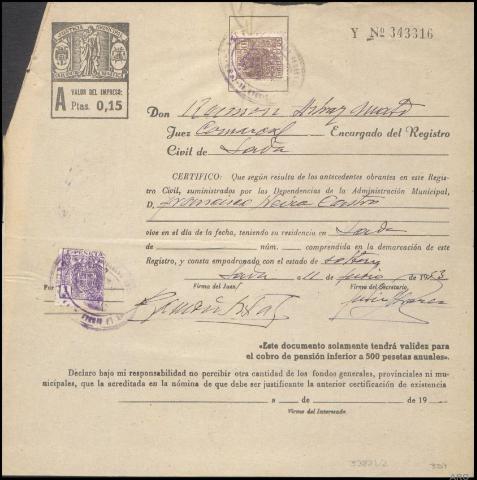 Y Nº 343316
JUSTICIA MUNICIPAL
A VALOR DEL IMPRESO:
Ptas. 0,15
Don Ramon
Juez Comarcal Encargado del Registro
Civil de Sada
CERTIFICO: Que según resulta de los antecedentes obrantes en este Regis-
tro Civil, suministrados por las Dependencias de la Administración Municipal,
D. Francisco Neira Castro
vive en el día de la fecha, teniendo su residencia en Sada
de núm. comprendida en la demarcación de este
Registro, y consta empadronado con el estado de
Sada a 11 de Junio de 1953
Por Firma del Juez, Firma del Secretario,
«Este documento solamente tendrá validez para
el cobro de pensión inferior a 500 pesetas anuales».
Declaro bajo mi responsabilidad no percibir otra cantidad de los fondos generales, provinciales ni mu-
nicipales, que la acreditada en la nómina de que debe ser justificante la anterior certificación de existencia
a de de 19
Firma del Interesado.